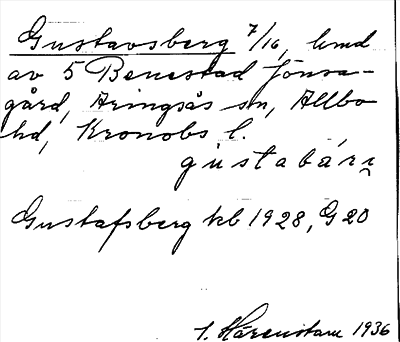 Gustavsberg 7/16, lmd
av 5 Benestad Jönsa-
gård, Aringsås sn, Allbo
hd, Kronobs l.
gústabárı̯
Gustafsberg kb 1928, G 20
I. Härenstam 1936